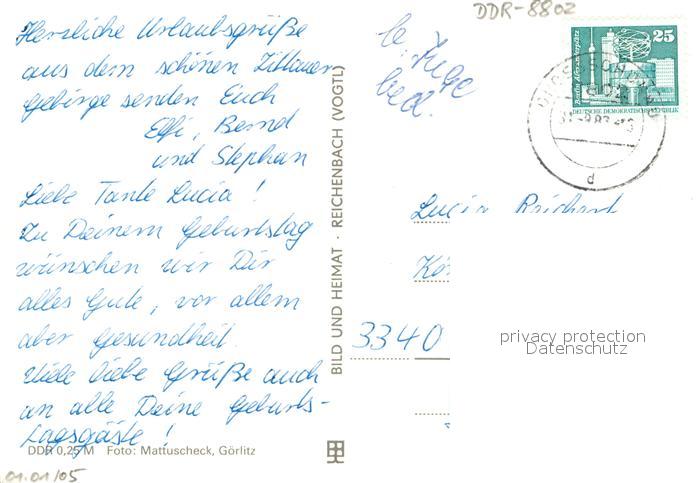 Herzliche Urlaubsgrüße
aus dem schönen Zittauer
Gebirge senden Euch
Elfi, Bernd
und Stephan
Liebe Tante Lucia !
Zu Deinem Geburtstag
wünschen wir Dir
alles Gute, vor allem
aber Gesundheit.
Viele liebe Grüße auch
an alle Deine Geburts-
tagsgäste !
DDR 0,25 M Foto: Mattuscheck, Görlitz
01.01/05
BILD UND HEIMAT · REICHENBACH (VOGTL)
DDR-8802
25
Berlin, Alexanderplatz
DEUTSCHE DEMOKRATISCHE REPUBLIK
d
Lucia Reichert
3340
privacy protection
Datenschutz